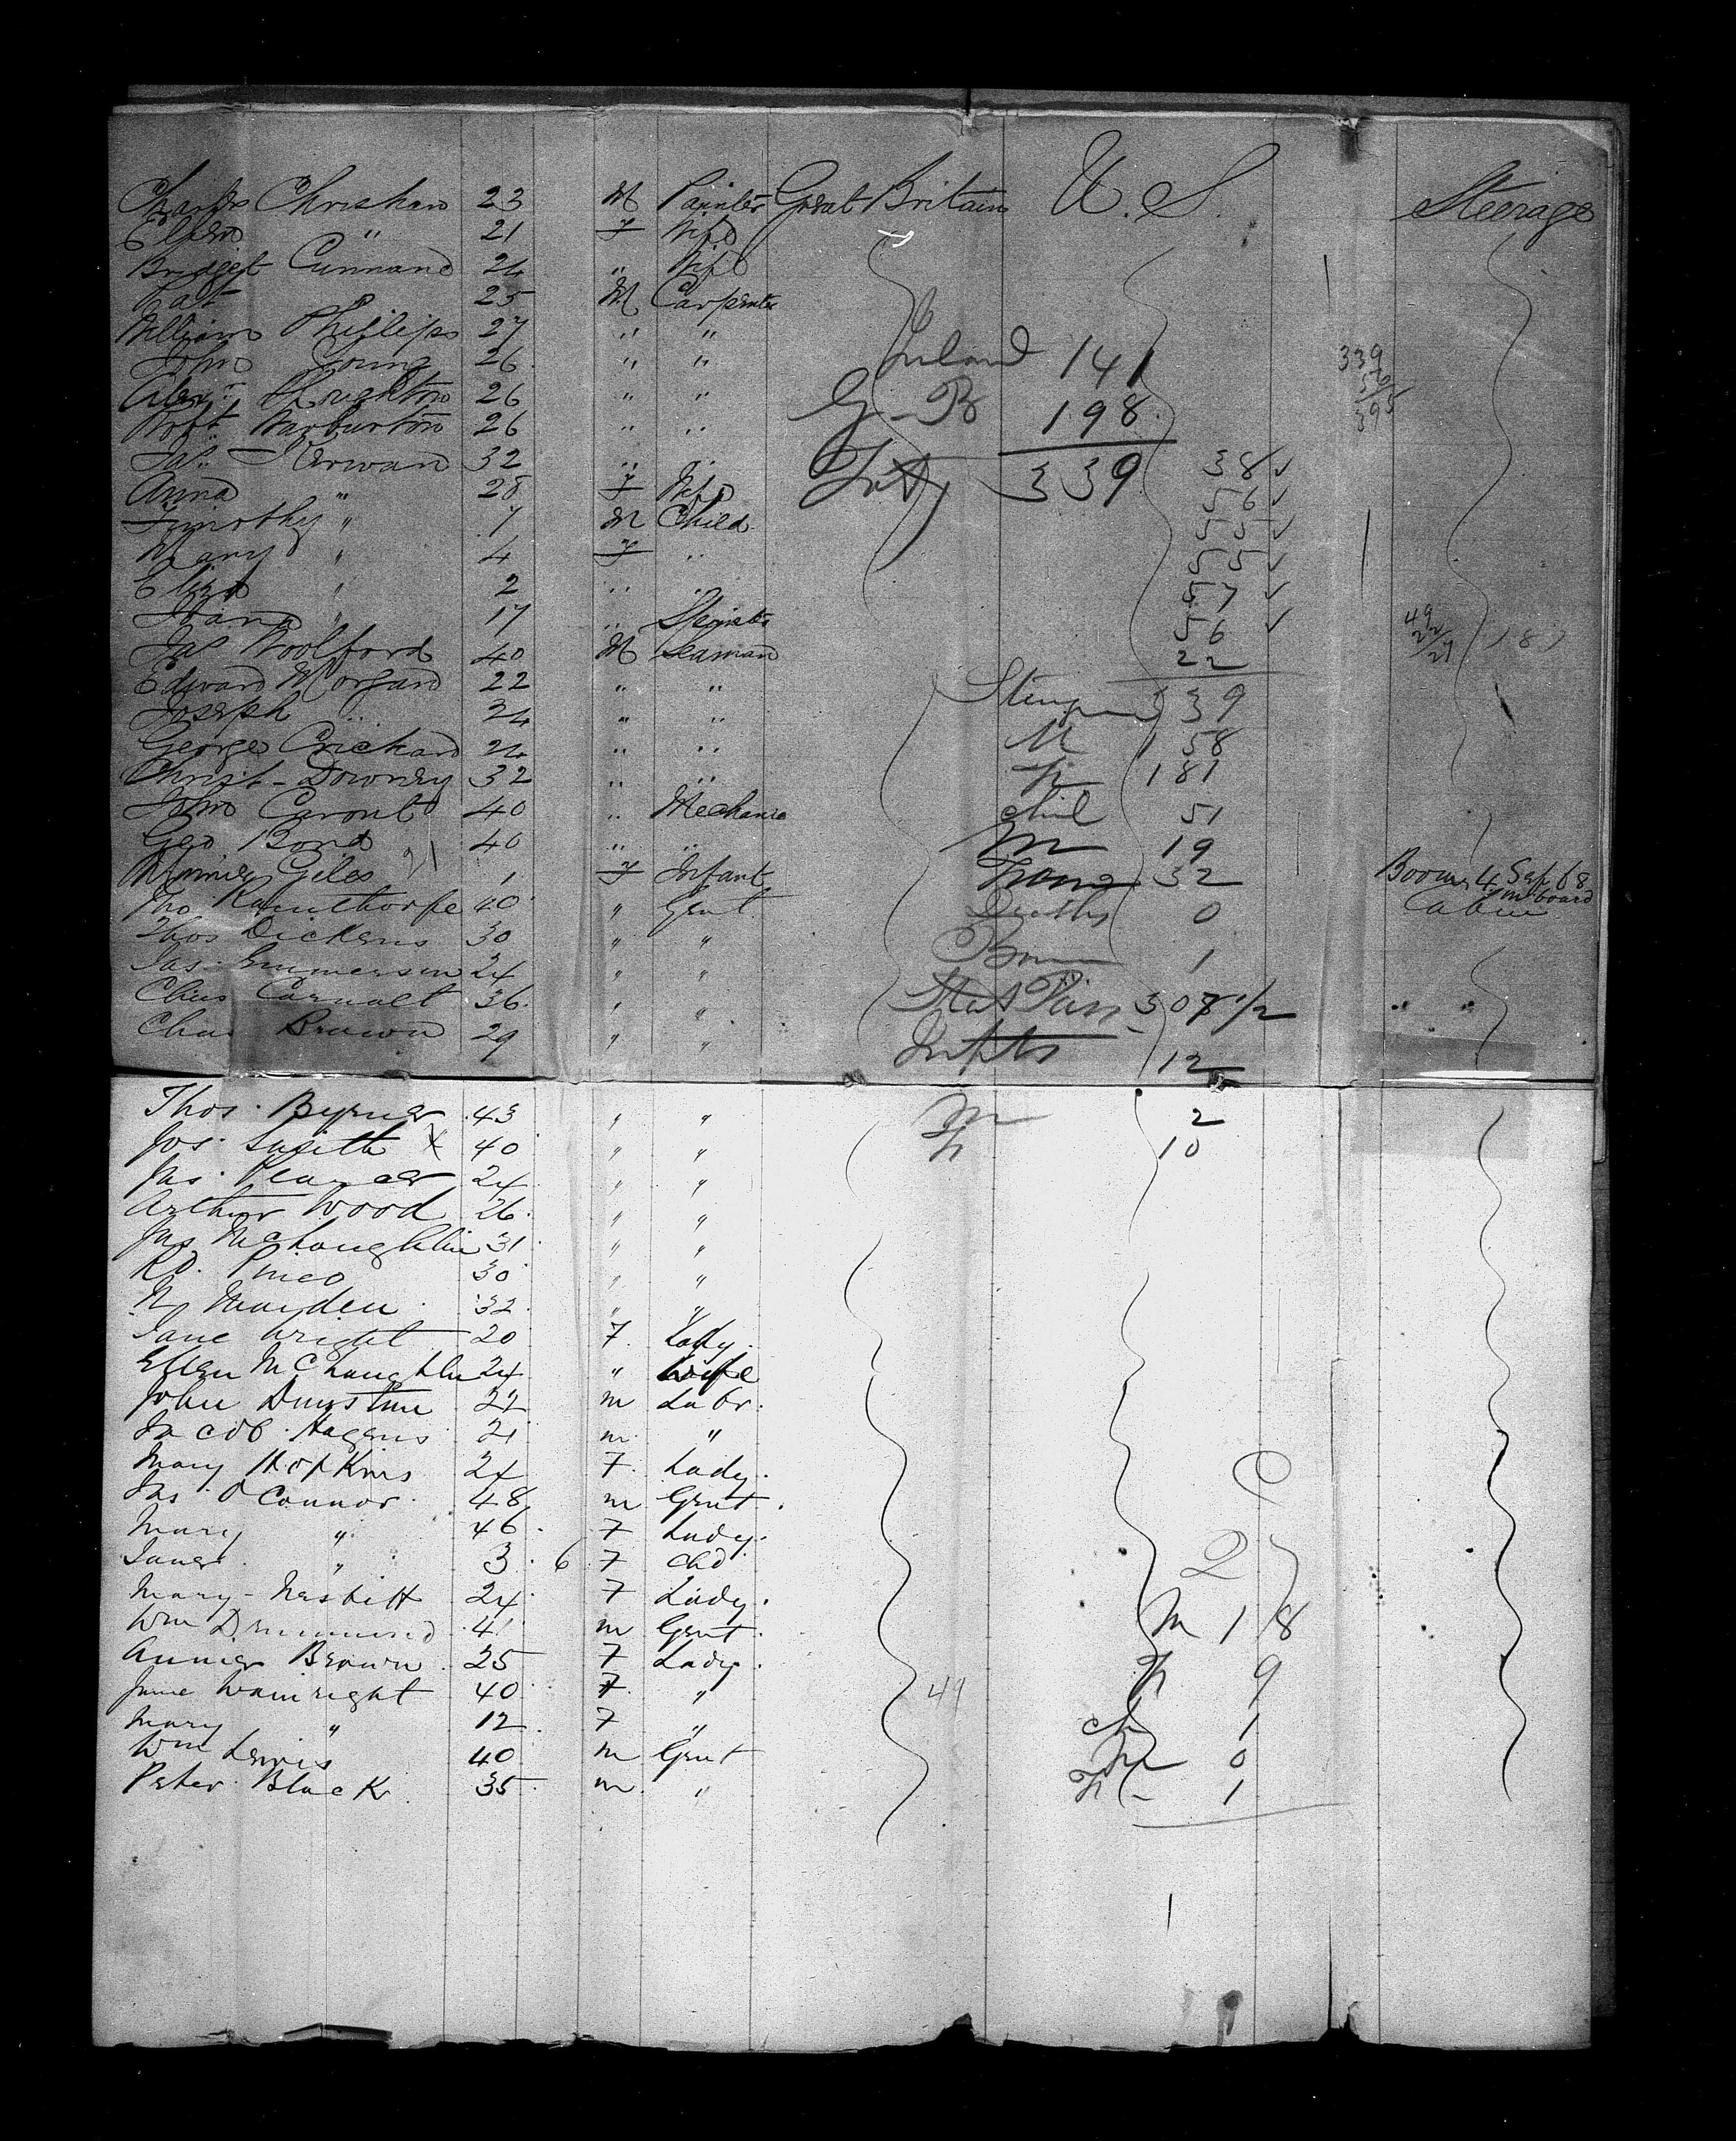 Charles Christian 23 M Painter Great Britain U. S. Steerage
Ellen " 21 F Wife
Bridget Cunnane 24 " Wife
Pat 25 M Carpenter
William Phillips 27 " "
John Young 26 " " Ireland 141 339
Alexr 26 " " G-B 198 395
Robt Warburton 26 " "
Jas Kerwan 32 " " 339 38 ✓
Anna " 28 F Wife 56 ✓
Timothy " 7 M Child 55 ✓
Mary " 4 F " 55 ✓
Eliza " 2 " " 57 ✓
" 17 " Spinster 56 ✓ 49 22/27 181
Jas Woolford 40 M Seaman 22
Edward Morgan 22 " " 339
Joseph " 24 " "
George Crichard 24 " " M 158
Christ- Downey 32 " " F 181
John 40 " Mechanic chil 51
Geo Bond 40 " " M 19
Minnie Giles 21 1 F Infant 32 Born 4 Sep 68 on board
Tho Ramthorpe 40 " Gent Deaths 0 Cabin
Thos Dickens 30 " " Born 1
Jas. Emmerson 24 " "
Carnalt 36 " " Stat Pass 307 1/2 " "
Chas Brown 29 " " Infts 12
Thos. Byrne 43 " " M 2
Jos. Smith x 40 " " F 10
Jas. 24 " "
Arthur Wood 26 " "
Jas McLoughlin 31 " "
Rd. Price 30 " "
Mayden 32 " "
Jane Wright 20 F Lady.
Ellen McLoughlin 24 " Wife
John Dunstan 22 m Labr.
Jacob Hagens 21 m "
Mary Hopkins 24 F. Lady. C
Jas. O'Connor 48 m Gent.
Mary " 46 F Lady.
" 3 6 F chd 2
Mary - Nesbitt 24 F Lady.
Wm Drummond 41 m Gent. M 18
Annie Brown 25 F Lady. F 9
Jane Wainright 40 F " 49
Mary " 12 F " ch 1
Wm Lewis 40 m Gent M 0
Peter Black 35 m " F - 1